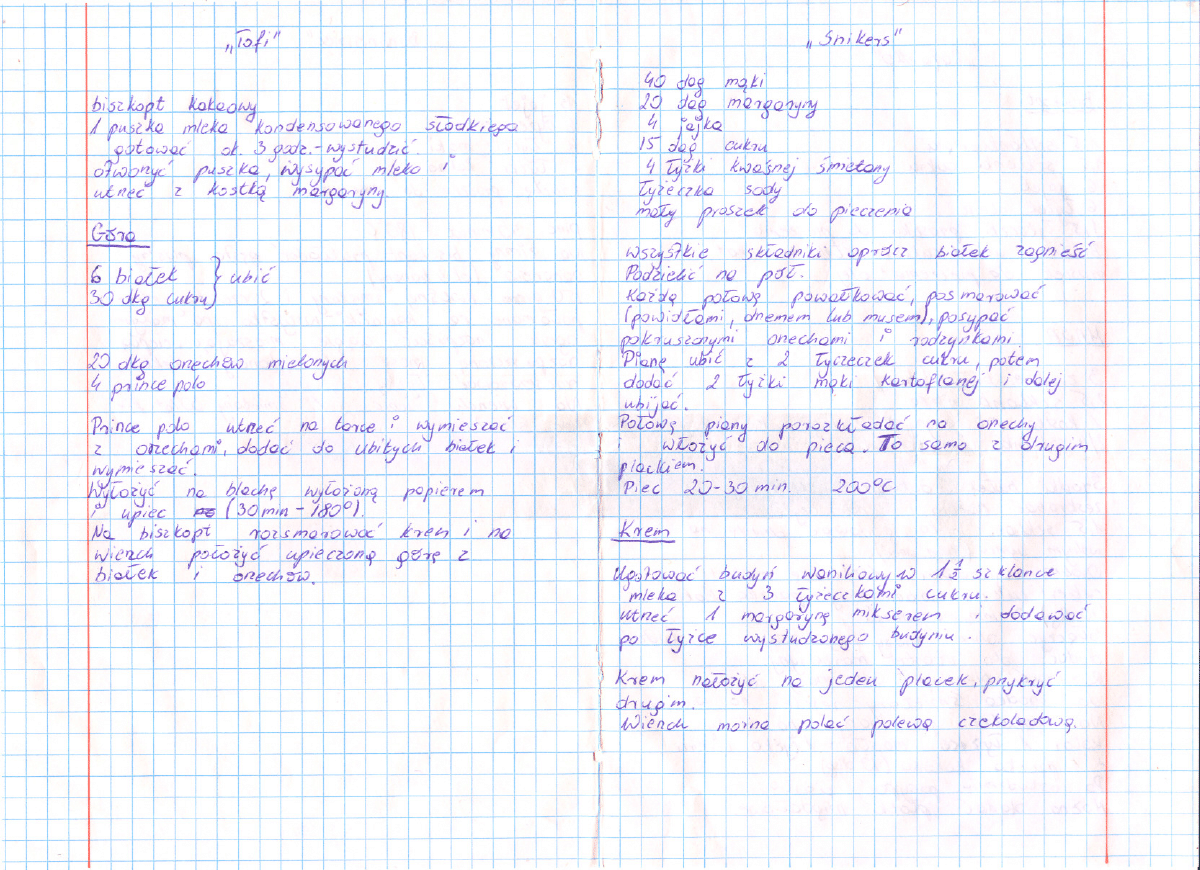 „Tofi"
biszkopt kakaowy
1 puszka mleka kondensowanego słodkiego
gotować ok. 3 godz.-wystudzić
otworzyć puszkę, wysypać mleko i
utrzeć z kostką margaryny
Góra
6 białek } ubić
30 dkg cukru
20 dkg orzechów mielonych
4 prince polo
Prince polo utrzeć na tarce i wymieszać
z orzechami, dodać do ubitych białek i
wymieszać.
Wyłożyć na blachę wyłożoną papierem
i upiec (30 min - 180°).
Na biszkopt rozsmarować krem i na
wierzch położyć upieczoną górę z
białek i orzechów.
„Snikers"
40 dag mąki
20 dag margaryny
4 jajka
15 dag cukru
4 łyżki kwaśnej śmietany
łyżeczka sody
mały proszek do pieczenia
wszystkie składniki oprócz białek zagnieść
Podzielić na pół.
Każdą połowę powałkować, posmarować
(powidłami, dżemem lub musem), posypać
pokruszonymi orzechami i rodzynkami.
Pianę ubić z 2 łyżeczek cukru, potem
dodać 2 łyżki mąki kartoflanej i dalej
ubijać.
Połowę piany porozkładać na orzechy
i włożyć do pieca. To samo z drugim
plackiem.
Piec 20-30 min. 200°C
Krem
Ugotować budyń waniliowy w 1 1/2 szklance
mleka z 3 łyżeczkami cukru.
utrzeć 1 margarynę mikserem i dodawać
po łyżce wystudzonego budyniu.
Krem nałożyć na jeden placek, przykryć
drugim.
Wierzch można polać polewą czekoladową.